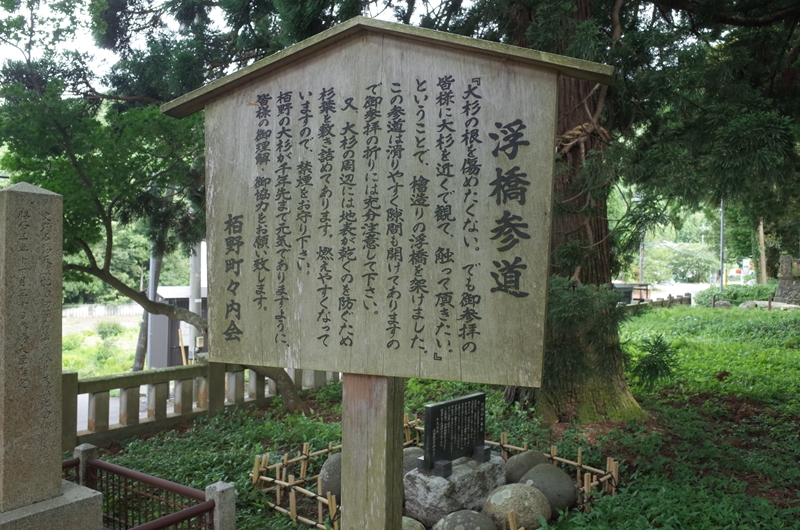 浮橋参道
『大杉の根を傷めたくない。でも御参拝の
皆様に大杉を近くで観て、触って頂きたい。』
ということで、檜造りの浮橋を架けました。
この参道は滑りやすく隙間も開けてありますの
で御参拝の折りには充分注意して下さい。
又、大杉の周辺には地表が乾くのを防ぐため
杉葉を敷き詰めてあります。燃えやすくなって
いますので、禁煙をお守り下さい。
栢野の大杉が千年先まで元気でありますように、
皆様の御理解、御協力をお願い致します。
栢野町々内会